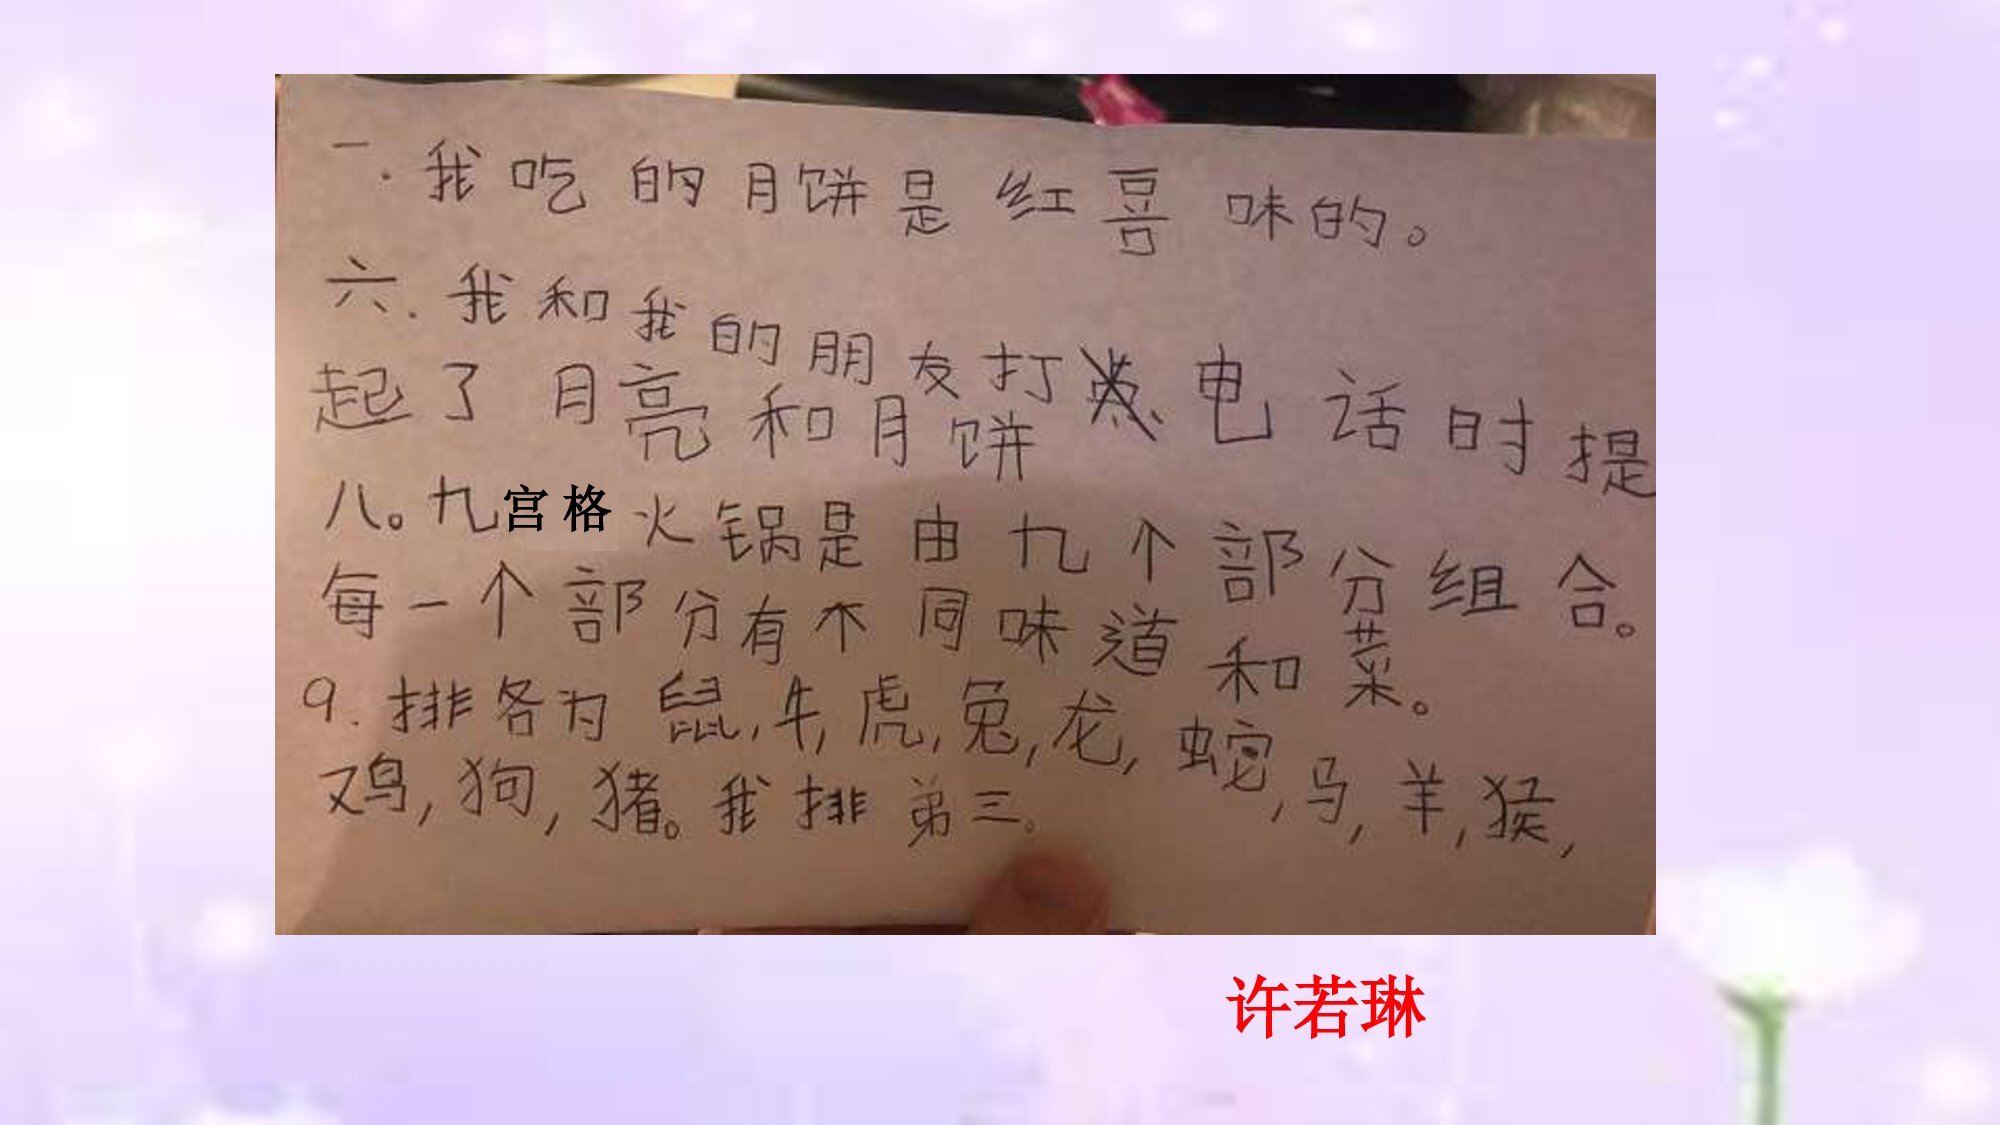 一. 我吃的月饼是红喜味的。
六. 我和我的朋友打电话时提
起了月亮和月饼
八。九宫格火锅是由九个部分组合。
每一个部分有不同味道和菜。
9. 排各为鼠,牛,虎,兔,龙,蛇,马,羊,猴,
鸡,狗,猪。我排弟三。
许若琳